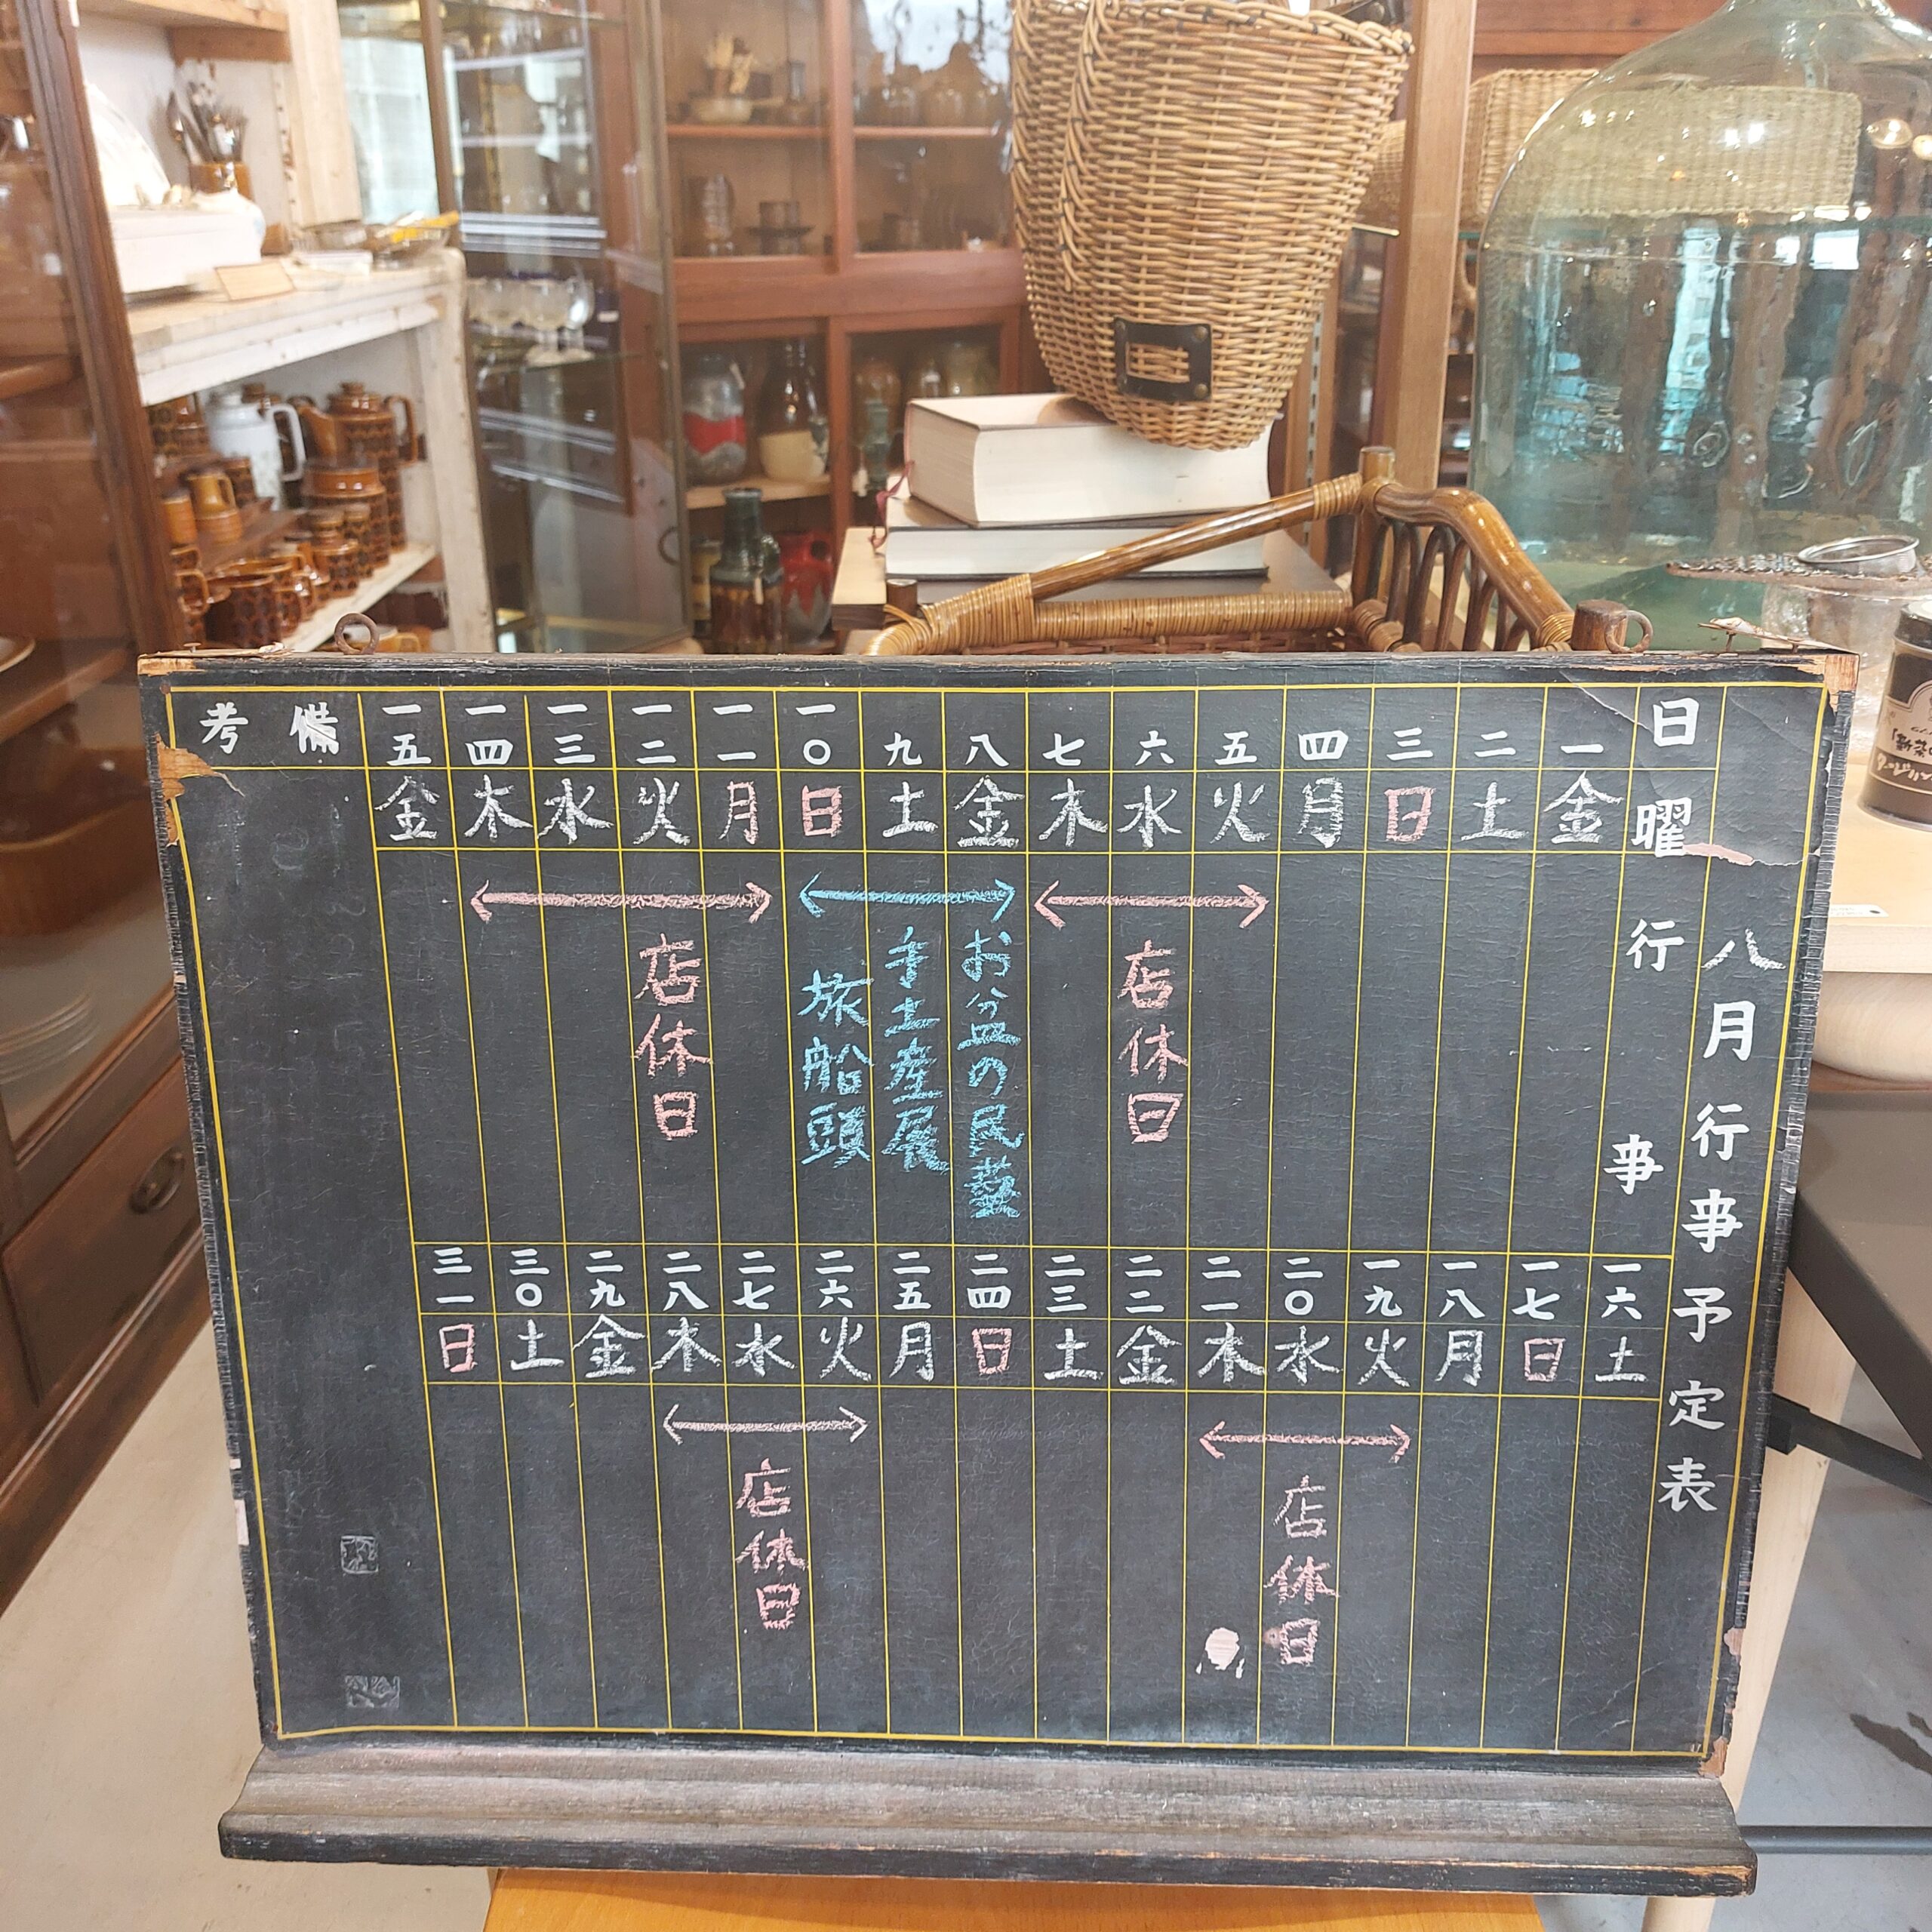 八月行事予定表
日 一 二 三 四 五 六 七 八 九 一〇 一一 一二 一三 一四 一五 備考
曜 金 土 日 月 火 水 木 金 土 日 月 火 水 木 金
行事
店休日
お盆の民藝
手土産展
旅船頭
店休日
一六 一七 一八 一九 二〇 二一 二二 二三 二四 二五 二六 二七 二八 二九 三〇 三一
土 日 月 火 水 木 金 土 日 月 火 水 木 金 土 日
店休日
店休日